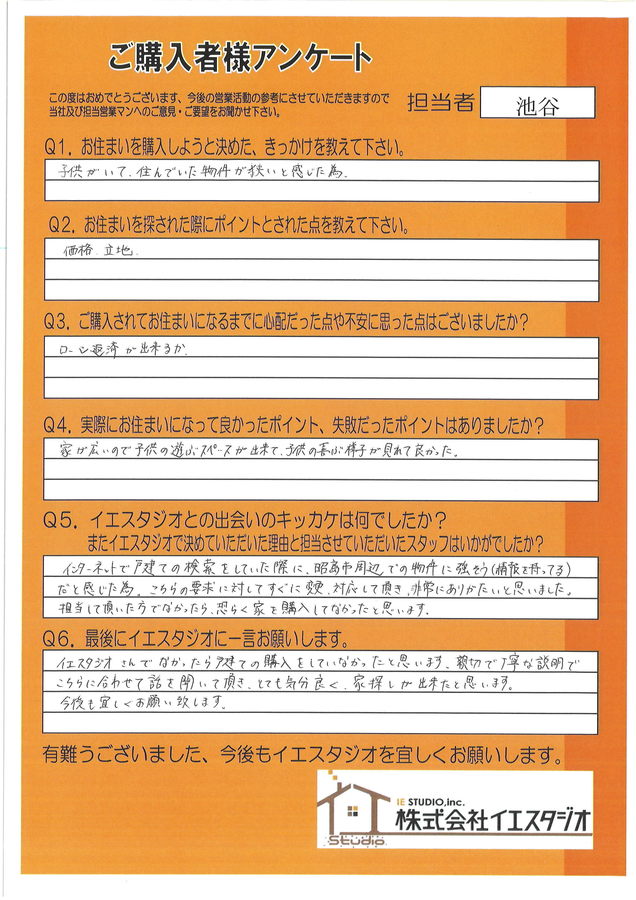 ご購入者様アンケート
この度はおめでとうございます、今後の営業活動の参考にさせていただきますので
当社及び担当営業マンへのご意見・ご要望をお聞かせ下さい。
担当者 池谷
Q1. お住まいを購入しようと決めた、きっかけを教えて下さい。
子供がいて、住んでいた物件が狭いと感じた為。
Q2. お住まいを探された際にポイントとされた点を教えて下さい。
価格、立地
Q3. ご購入されてお住まいになるまでに心配だった点や不安に思った点はございましたか?
ローン返済が出来るか。
Q4. 実際にお住まいになって良かったポイント、失敗だったポイントはありましたか?
家が広いので子供の遊ぶスペースが出来て、子供の喜ぶ様子が見れて良かった。
Q5. イエスタジオとの出会いのキッカケは何でしたか?
またイエスタジオで決めていただいた理由と担当させていただいたスタッフはいかがでしたか?
インターネットで戸建ての検索をしていた際に、昭島市周辺での物件に強そう(情報を持ってる)
だと感じた為。こちらの要求に対してすぐに対応して頂き、非常にありがたいと思いました。
担当して頂いた方でなかったら、恐らく家を購入してなかったと思います。
Q6. 最後にイエスタジオに一言お願いします。
イエスタジオさんでなかったら戸建ての購入をしていなかったと思います。親切で丁寧な説明で
こちらに合わせて話を聞いて頂き、とても気分良く、家探しが出来たと思います。
今後も宜しくお願い致します。
有難うございました、今後もイエスタジオを宜しくお願いします。
IE STUDIO,inc.
株式会社イエスタジオ
Studio